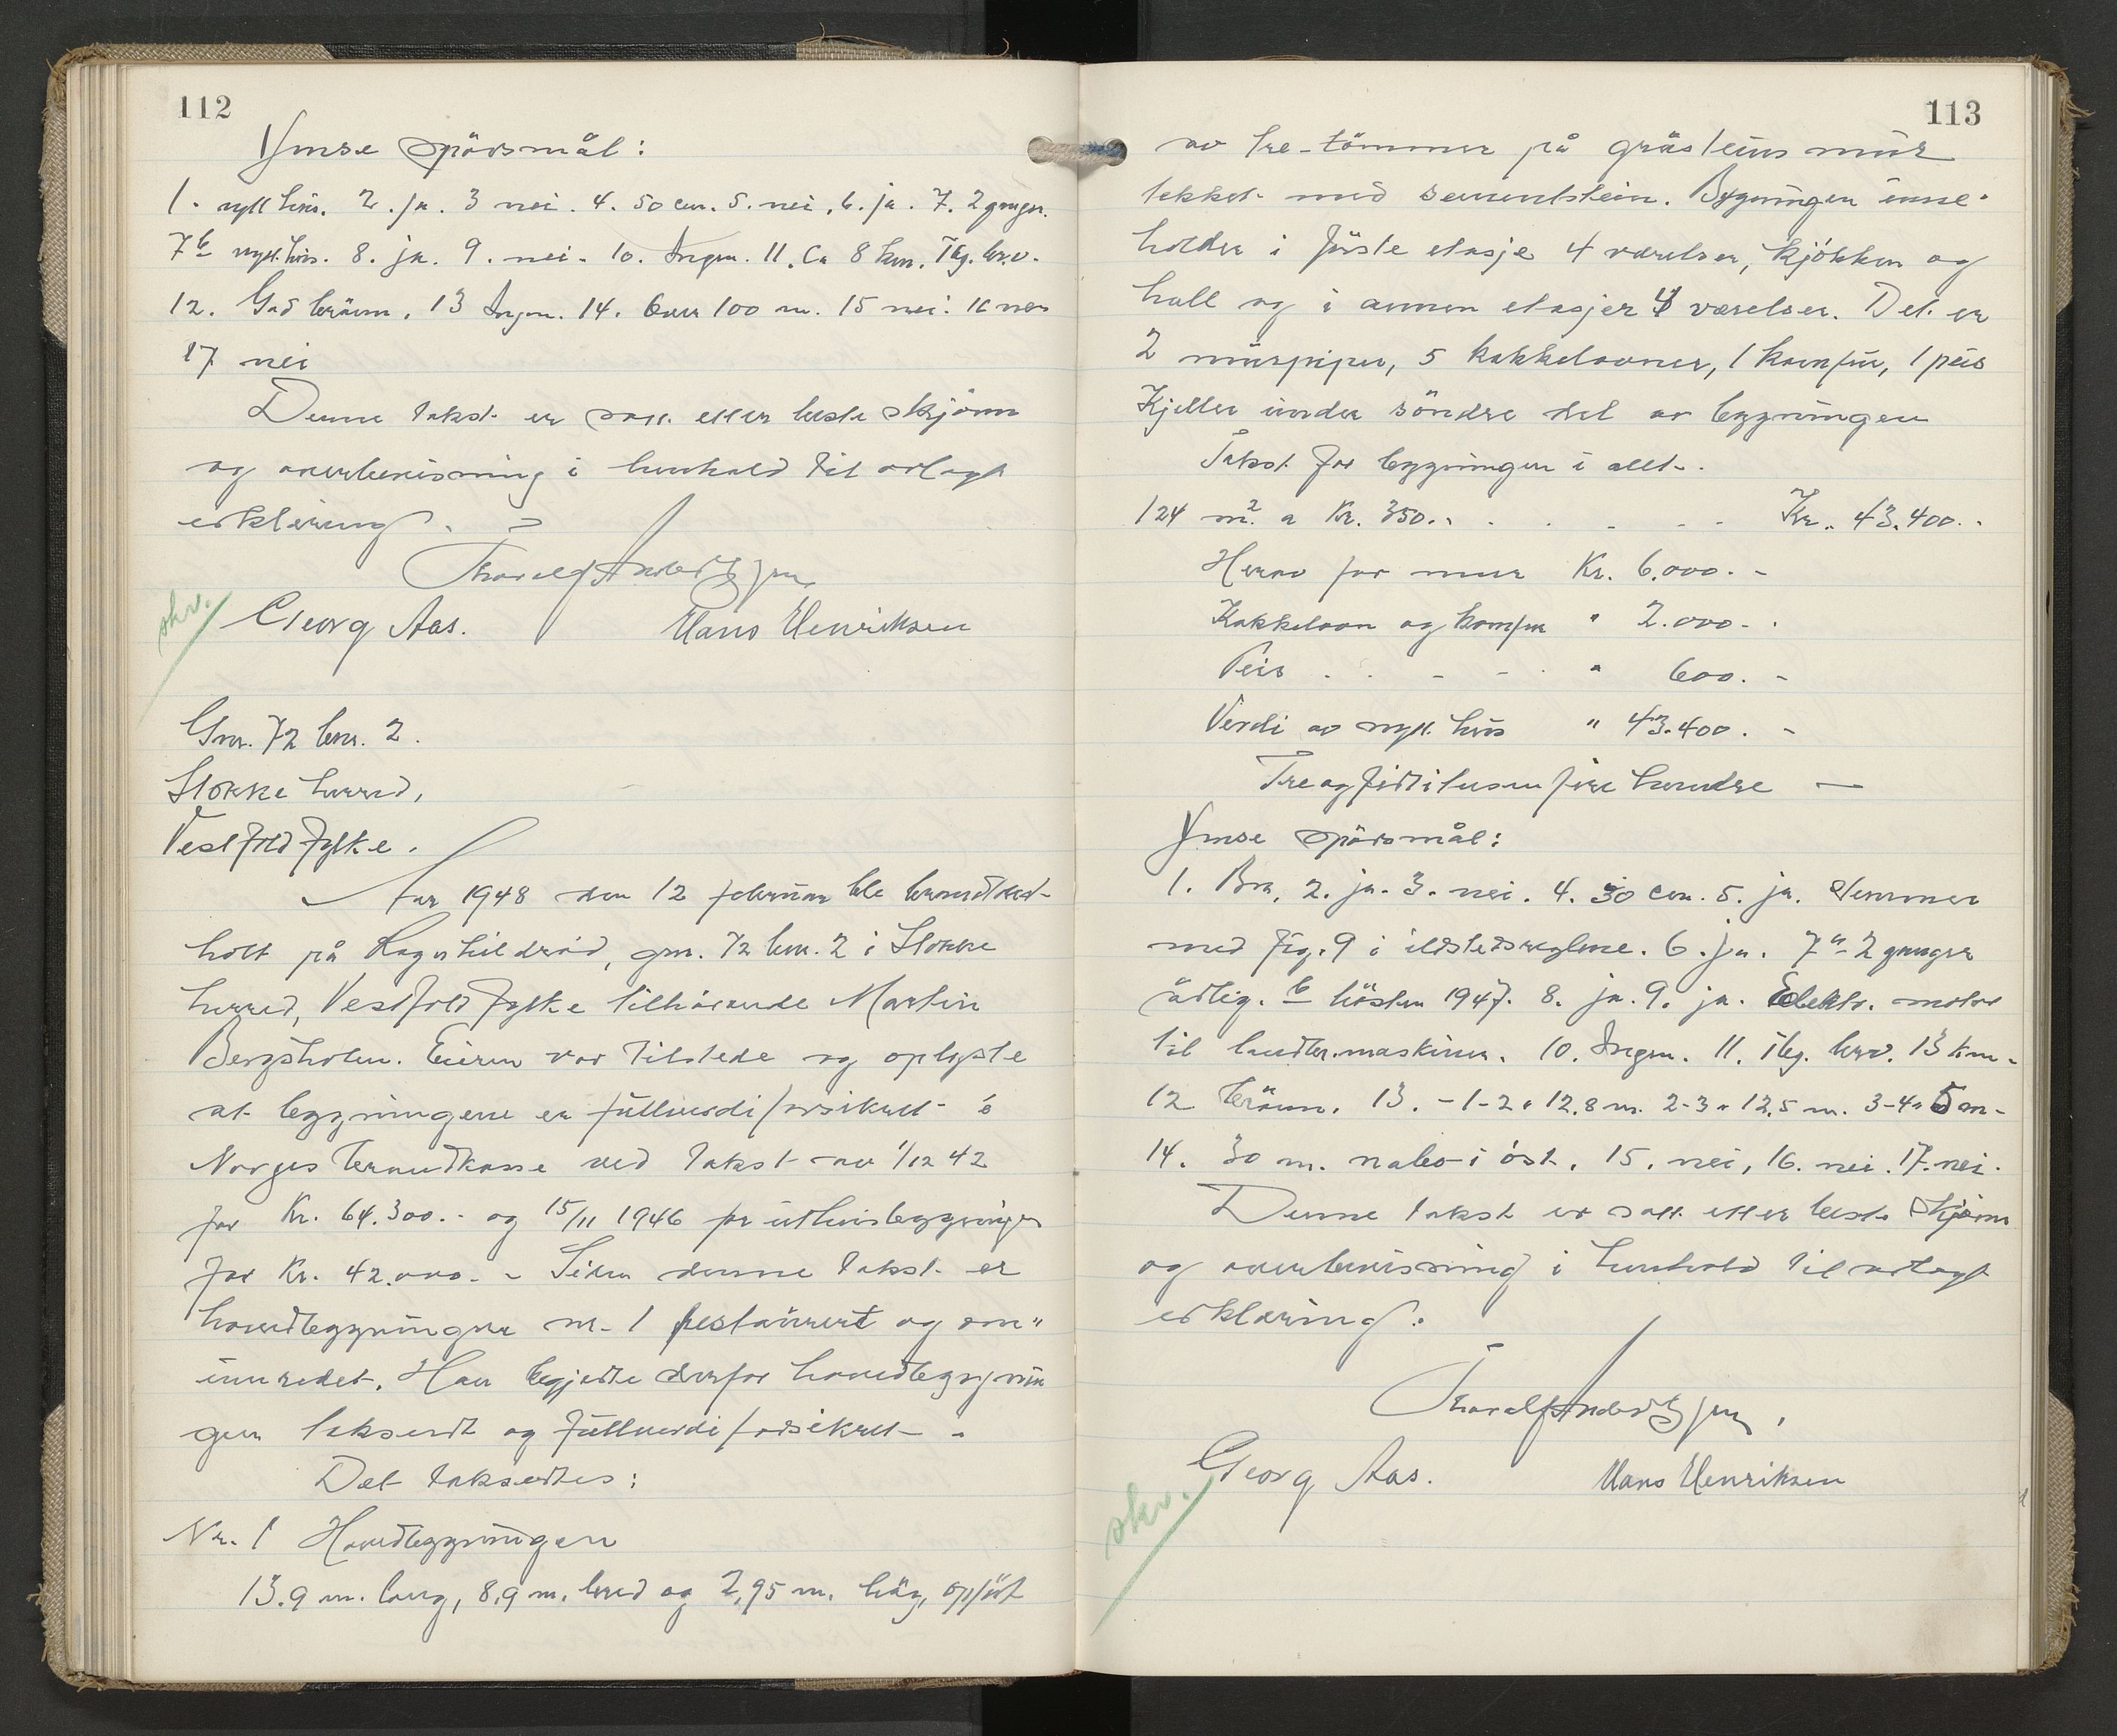 112
Ymse spörsmål:
1. nytt hus. 2. ja. 3 nei. 4. 50 cm. 5. nei. 6. ja. 7. 2 ganger.
7b nytt hus. 8. ja. 9. nei. 10. Ingen. 11. Ca 8 km. Tbg. br.v.
12. God brönn. 13 Ingen. 14. Over 100 m. 15 nei. 16 nei
17 nei
Denne takst er satt etter beste skjönn
og overbevisning i henhold til avlagt
erklæring.
Georg Aas. Hans Henriksen
skr.
Gnr. 72 bnr. 2.
Stokke herred,
Vestfold fylke.
År 1948 den 12 februar ble branntakst
holt på Ragnhildröd, gnr. 72 bnr. 2 i Stokke
herred, Vestfold fylke tilhörende Martin
Bergsholm. Eieren var tilstede og oplyste
at bygningene er fullverdiforsikret i
Norges brandkasse ved takst av 1/12 42
for Kr. 64.300.- og 15/11 1946 for uthusbygningen
for Kr. 42.000.- Siden denne takst er
hovedbygningen nr. 1 restaurert og om"
innredet. Han begjerte derfor hovedbygnin
gen taksert og fullverdiforsikret.
Det takseres:
Nr. 1 Hovedbygningen
13.9 m. lang, 8,9 m. bred og 2,95 m. höy, opfört
113
av tre-tömmer på gråsteins mur
tekket med sementstein. Bygningen inne-
holder i förste etasje 4 værelser, kjökken og
hall og i annen etasjer 4 værelser. Det er
2 murpiper, 5 kakkelovner, 1 komfur, 1 peis
Kjeller under söndre del av bygningen
Takst for bygningen i allt.
124 m2. a Kr. 350.- . . . . . Kr. 43.400.-
Herav for mur Kr. 6.000.-
Kakkelovn og komfur " 2.000.-
Peis . . - - . " 600.-
Verdi av nytt hus " 43.400.-
Treogførtitusen fire hundre —
Ymse spörsmål:
1. Bra, 2. ja. 3. nei. 4. 30 cm. 5. ja. Stemmer
med fig. 9 i ildstedsreglene. 6. ja. 7a- 2 ganger
årlig. b hösten 1947. 8. ja. 9. ja. Elektr. motor
til landbr.maskiner. 10. Ingen. 11. Tbg. brv. 13 km.
12 brönn. 13. -1-2 = 12.8 m. 2-3 = 12,5 m. 3-4 = 5 m-
14. 30 m. nabo i öst. 15. nei, 16. nei. 17. nei.
Denne takst er satt etter beste skjönn
og overbevisning i henhold til avlagt
erklæring.
Georg Aas. Hans Henriksen
skr.